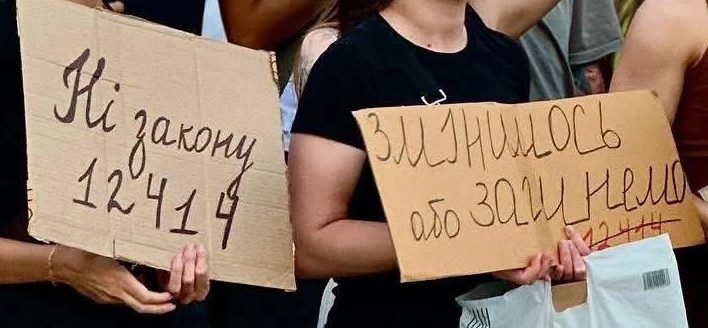 Ні закону
12414
ЗМІНИМОСЬ
або ЗАГИНЕМО
12414